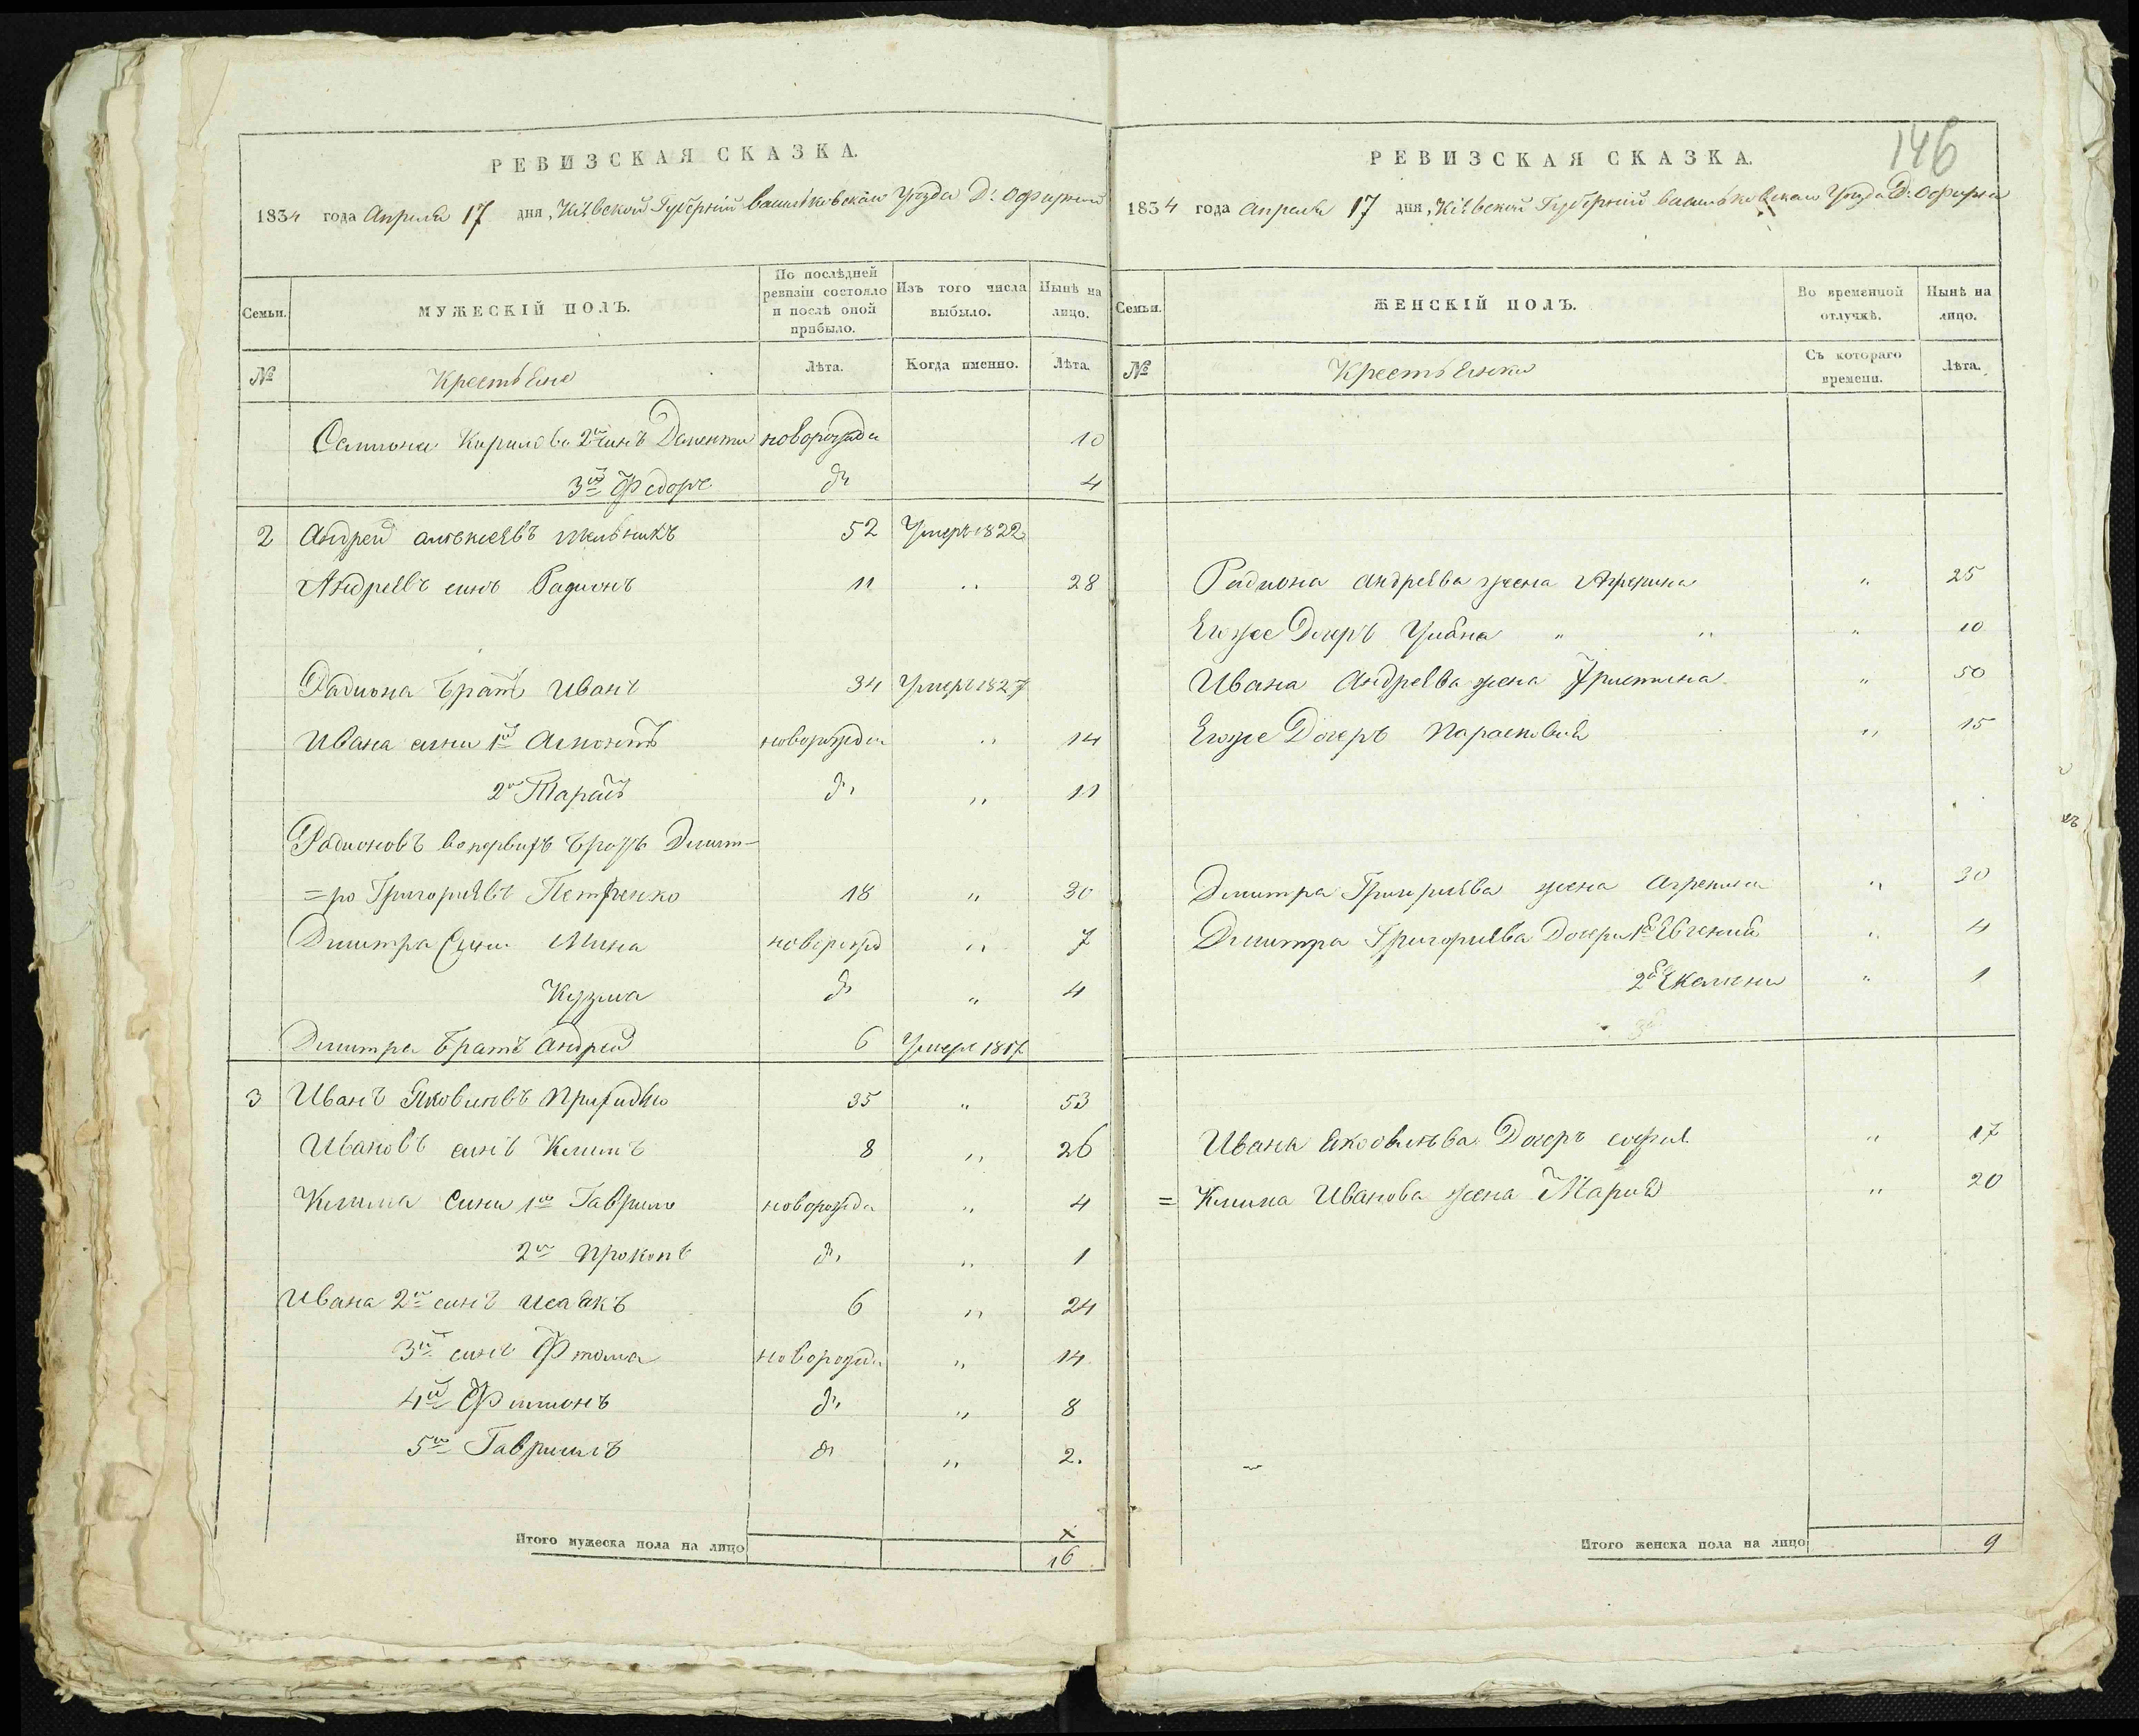 146
РЕВИЗСКАЯ СКАЗКА.
1834 года Апреля 17 дня, Кіевской Губерніи васильковскаго Уезда
Семьи.
МУЖЕСКІЙ ПОЛЪ.
По послѣдней ревизіи состояло и послѣ оной прибыло.
Изъ того числа выбыло.
Нынѣ на лицо.
№
Лѣта.
Когда именно.
Лѣта.
Кирилова 2й синъ новорожда 10
3й Федоръ до 4
2 Андрей 52 Умеръ 1822
Андреевъ синъ Радионъ 11 „ 28
Радиона братъ Иванъ 34 Умеръ 1827
Ивана сини 1й новорожда „ 14
2й Тарасъ до „ 11
Радионовъ братъ Дмит-
=ро Григориевъ Петренко 18 „ 30
Дмитра Сини Мина новорожд „ 7
Кузма до „ 4
Дмитра братъ Андрей 6 Умеръ
3 Иванъ Яковлевъ 35 „ 53
Ивановъ синъ Климъ 8 „ 26
Клима Сини 1й Гаврило новорожда „ 4
2й Прокопъ до „ 1
Ивана 2й синъ Исаакъ 6 „ 24
3й синъ новорожда „ 14
4й Филимонъ до „ 8
5й Гавриилъ до „ 2.
Итого мужеска пола на лицо
х
16
РЕВИЗСКАЯ СКАЗКА.
1834 года Апреля 17 дня, Кіевской Губерніи васильковскаго Уезда
Семьи.
ЖЕНСКІЙ ПОЛЪ.
Во временной отлучкѣ.
Нынѣ на лицо.
№
Съ котораго времени.
Лѣта.
Радиона Андреева жена „ 25
Егоже Дочеръ Улiяна „ „ „ 10
Ивана Андреева жена Христина „ 50
Егоже Дочеръ Парасковия „ 15
Дмитра Григориева жена „ 30
Дмитра Григориева Дочери 1я Евгения „ 4
2я „ 1
Ивана Дочеръ „ 17
= Клима Иванова жена Мария „ 20
Итого женска пола на лицо 9